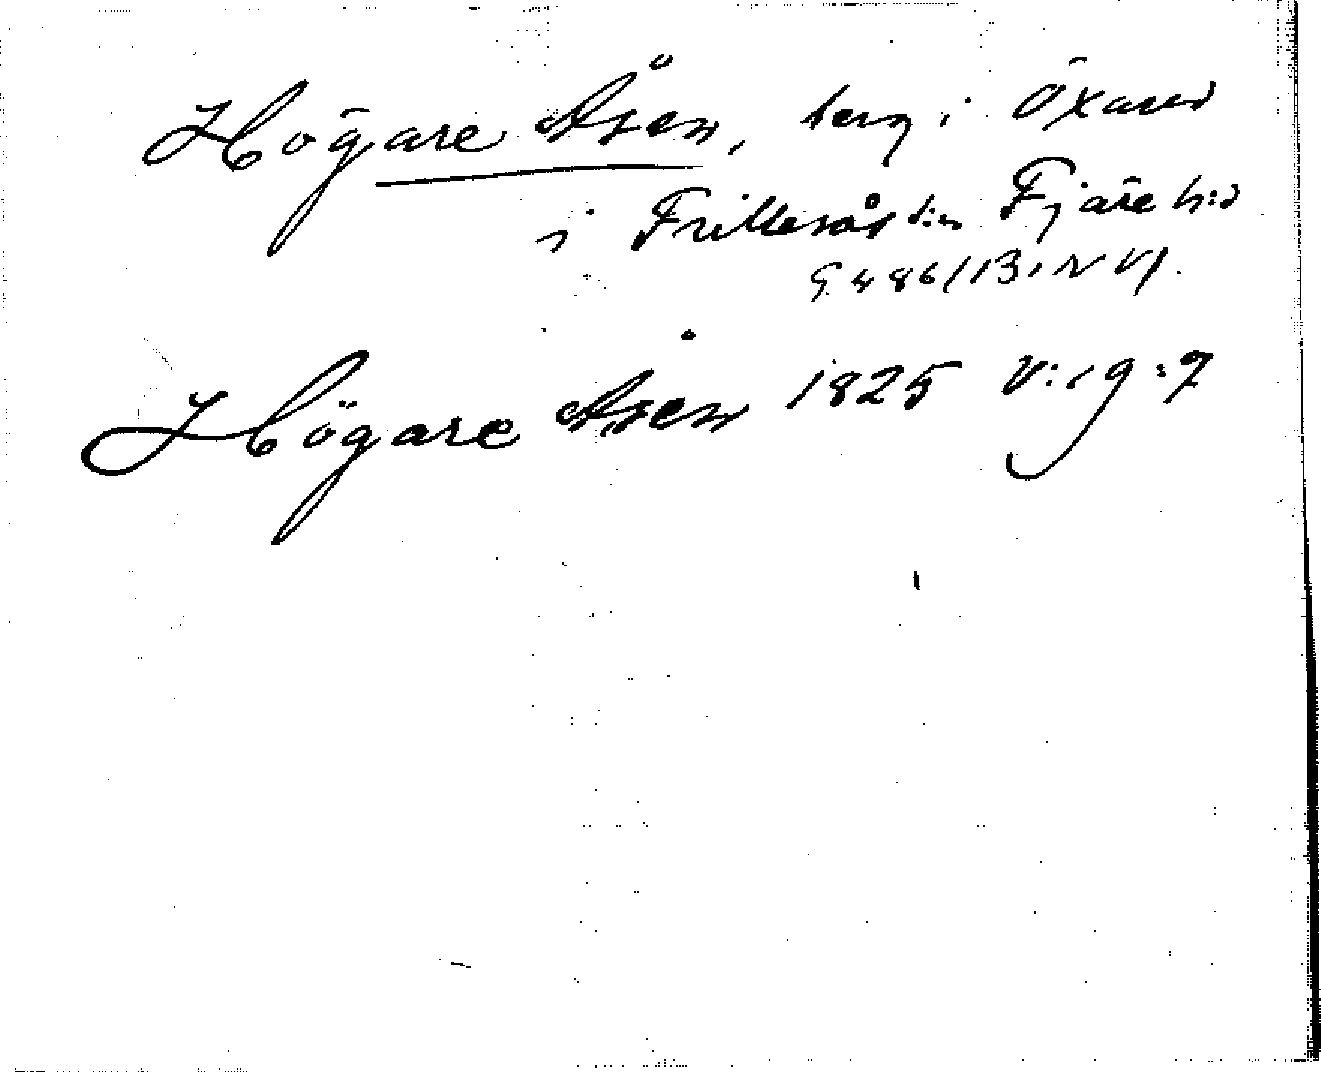 Högare Åsen, berg i Öxared
i Frillesås s:n Fjäre h:d
G 486/13,
Högare Åsen 1825 V:19:7